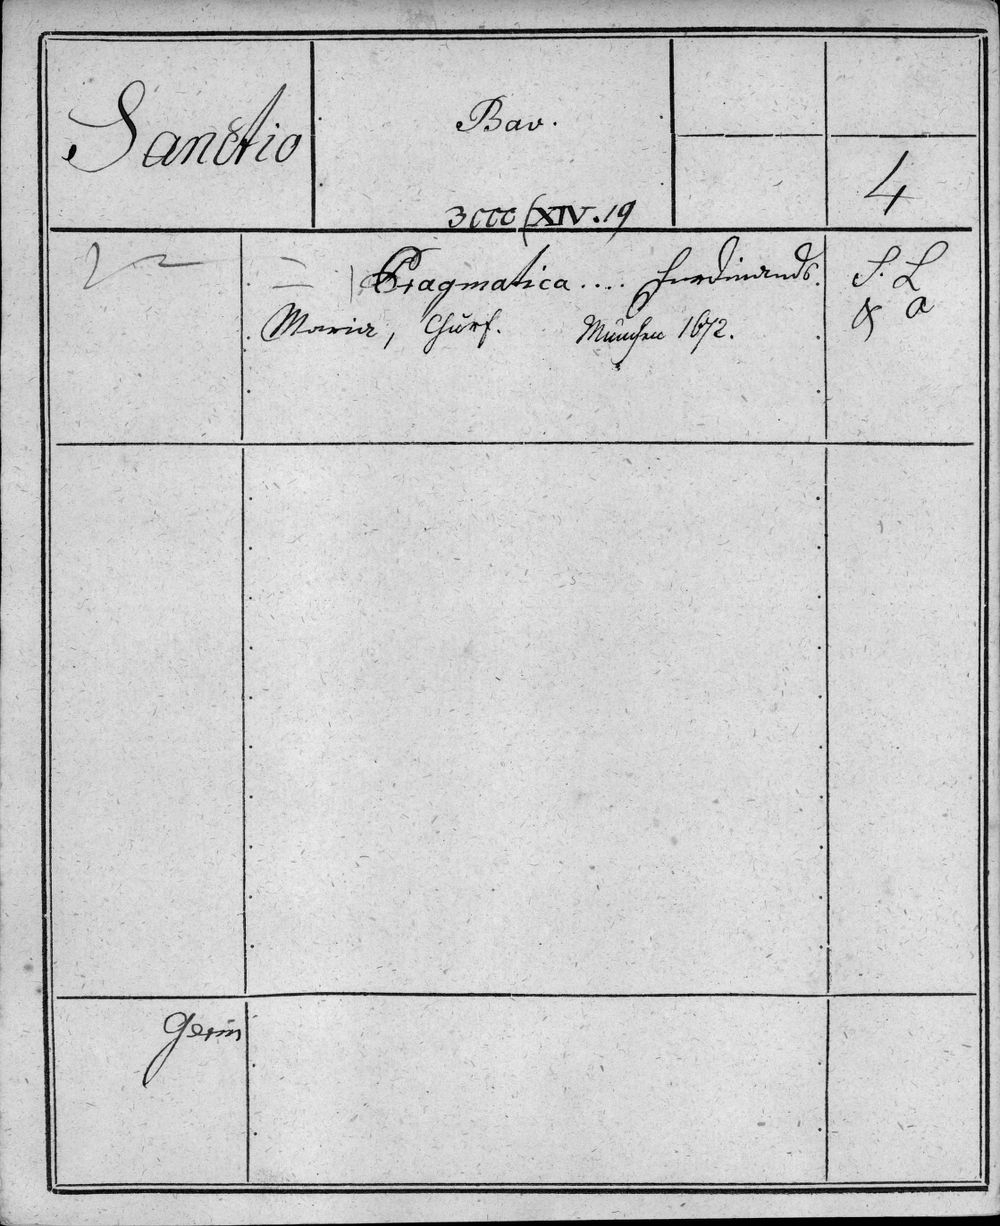 Sanctio
Bav.
4
3000 (XIV. 19)
= Pragmatica .... Ferdinands
Maria, Churf. München 1672.
S. L
& a
Germ